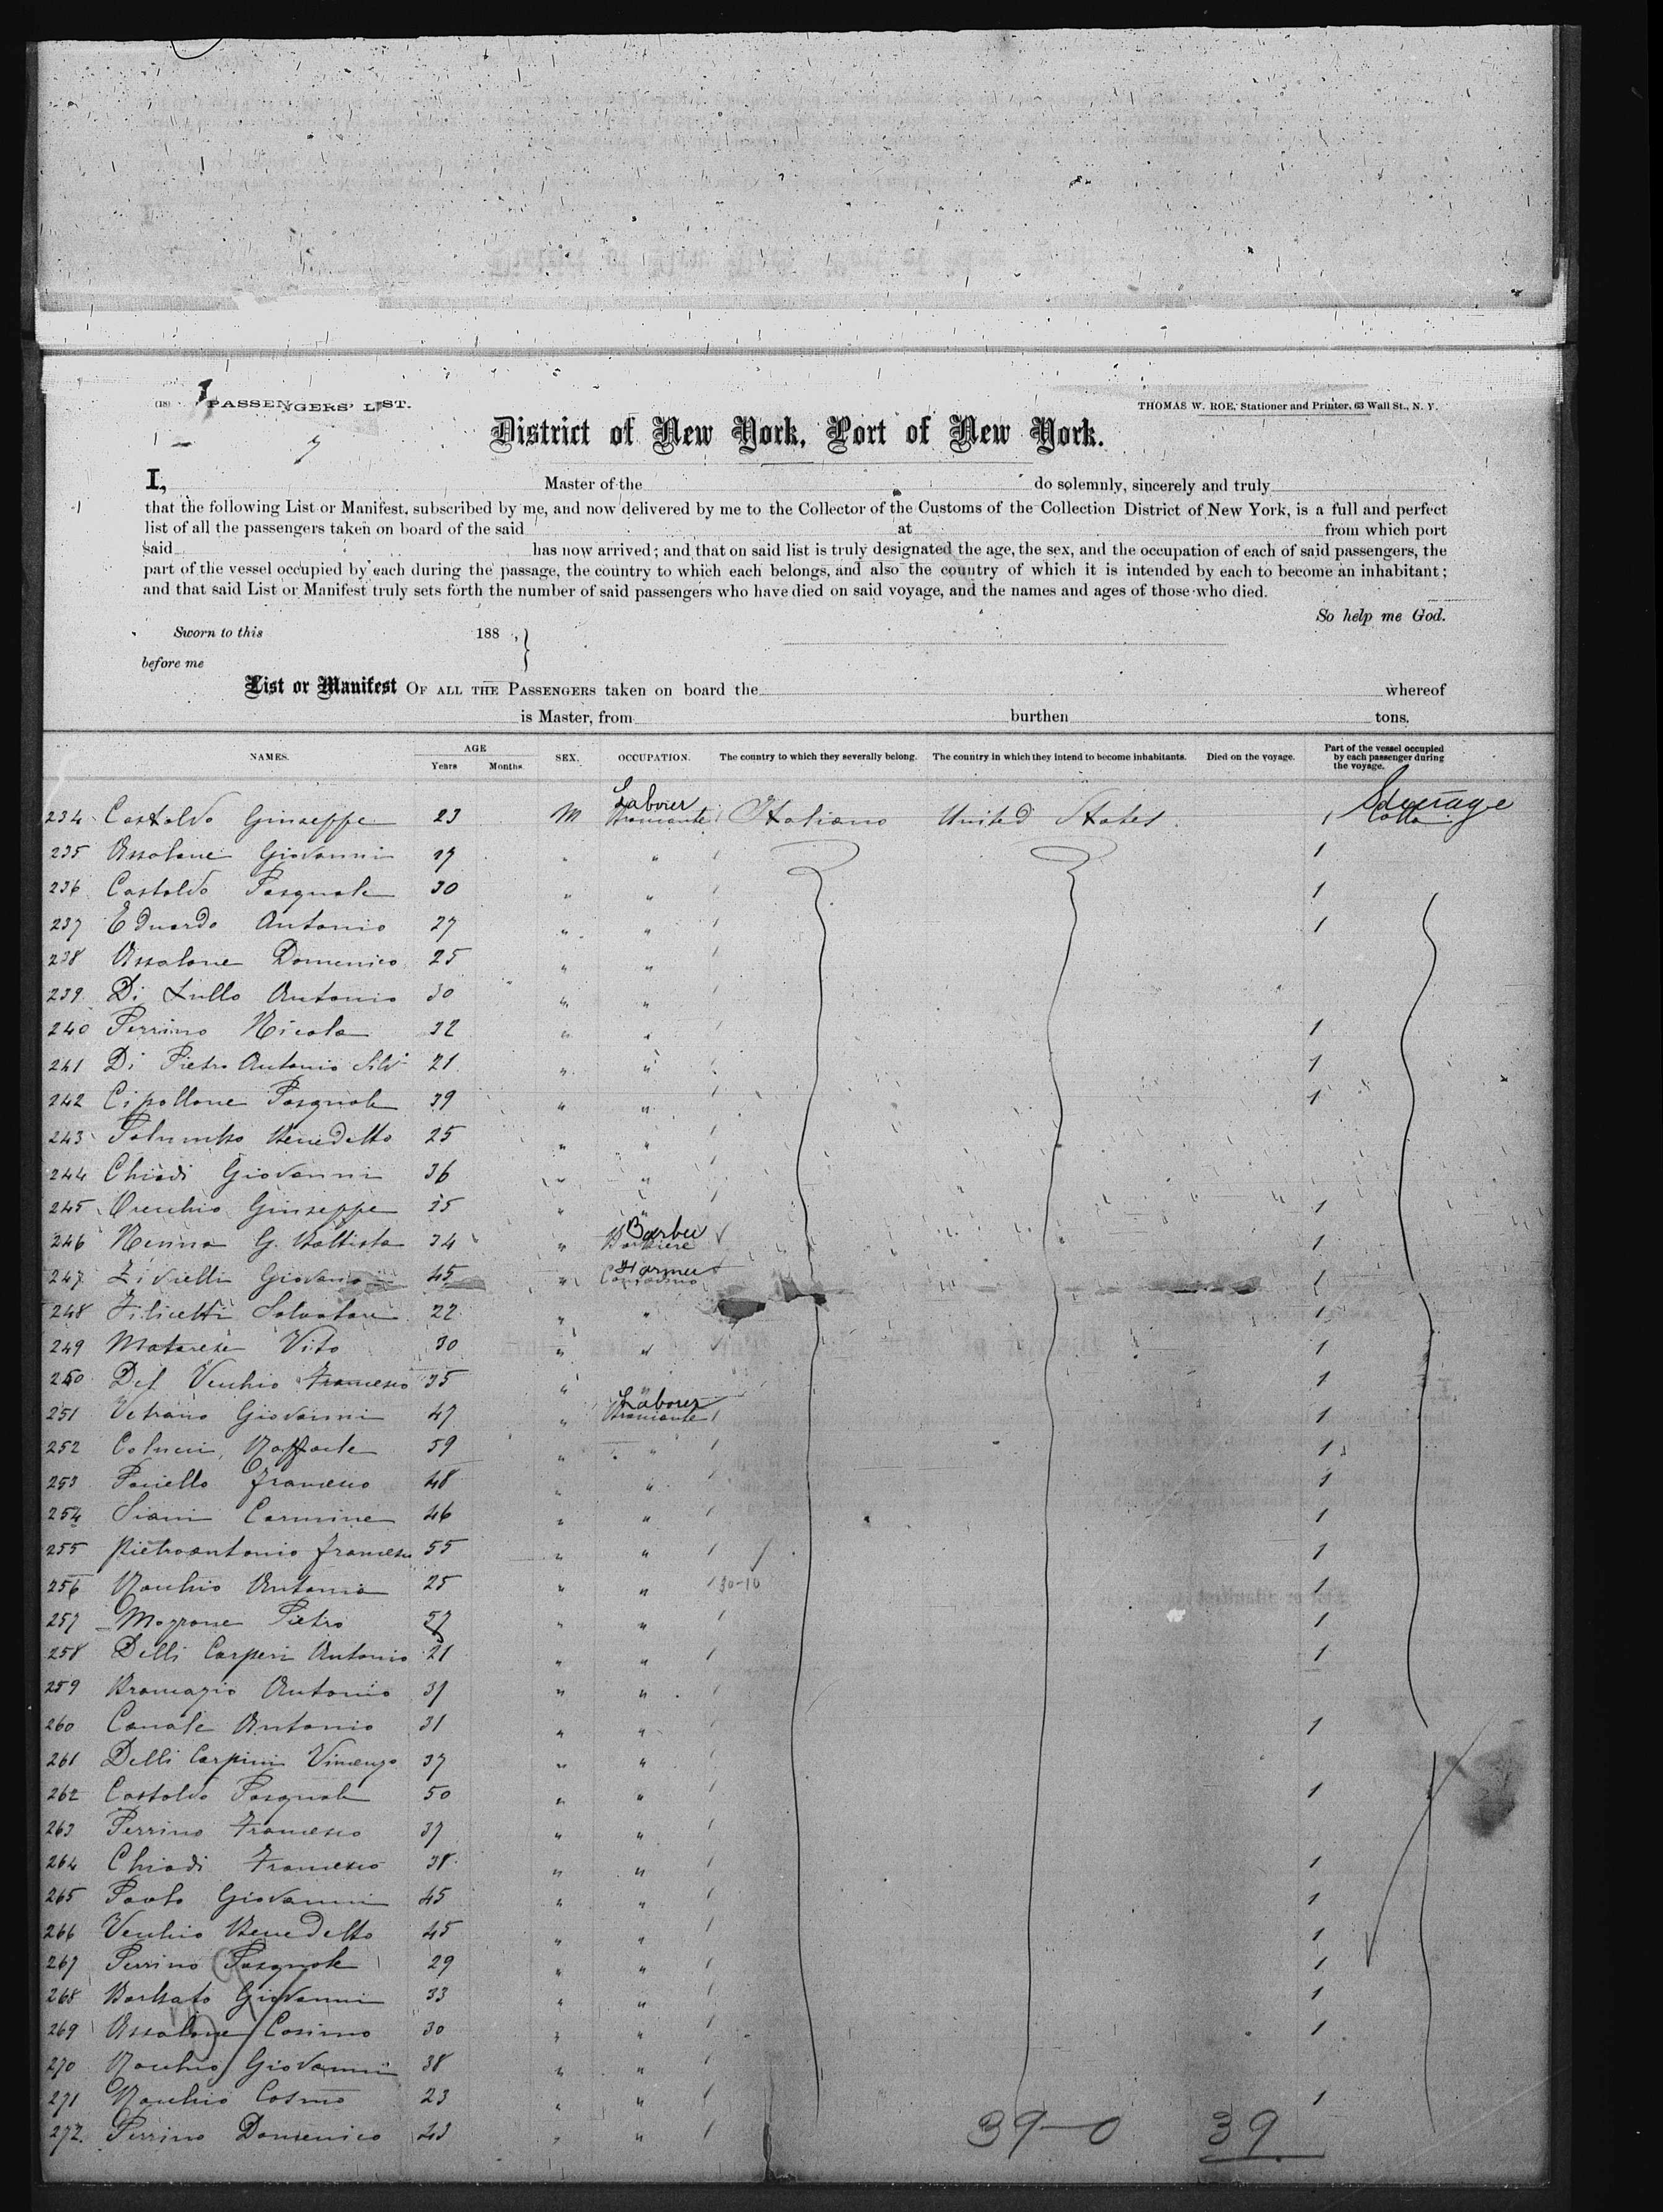 (18) PASSENGERS' LIST.
THOMAS W. ROE, Stationer and Printer, 63 Wall St., N. Y.
7
District of New York, Port of New York.
I, Master of the do solemnly, sincerely and truly
that the following List or Manifest, subscribed by me, and now delivered by me to the Collector of the Customs of the Collection District of New York, is a full and perfect
list of all the passengers taken on board of the said at from which port
said has now arrived; and that on said list is truly designated the age, the sex, and the occupation of each of said passengers, the
part of the vessel occupied by each during the passage, the country to which each belongs, and also the country of which it is intended by each to become an inhabitant;
and that said List or Manifest truly sets forth the number of said passengers who have died on said voyage, and the names and ages of those who died.
So help me God.
Sworn to this 188 ,
before me
List or Manifest OF ALL THE PASSENGERS taken on board the whereof
is Master, from burthen tons.
NAMES. AGE Years Months. SEX. OCCUPATION. The country to which they severally belong. The country in which they intend to become inhabitants. Died on the voyage. Part of the vessel occupied by each passenger during the voyage.
Laborer Steerage
234 Castaldo Giuseppe 23 M Italiano United States 1
235 Assalone Giovanni 27 " " 1
236 Castaldo Pasquale 30 " " 1
237 Eduardo Antonio 27 " " 1
238 Assalone Domenico 25 " "
239 Di Lullo Antonio 30 " "
240 Perrino Nicola 32 " " 1
241 Di Pietro Antonio Silv 21 " " 1
242 Cipollone Pasquale 39 " " 1
243 Palumbo Benedetto 25 " "
244 Chiadi Giovanni 36 " "
245 Orecchio Giuseppe 25 " " 1
Barber
246 Nenna G. Battista 34 " Barbiere 1
Farmer
247 Giovanni 45 " Contadino 1
248 Filicetti Salvatore 22 " " 1
249 Matarese Vito 30 " " 1
250 Del Vecchio Francesco 35 " " 1
Laborer
251 Vetrano Giovanni 47 " 1
252 Colucci Raffaele 59 " " 1
253 Paniello Francesco 48 " " 1
254 Siani Carmine 46 " " 1
255 Pietroantonio Francesco 55 " " 1
256 Nocchio Antonio 25 " " 30-10 1
257 Morrone Pietro 57 " " 1
258 Delli Carpini Antonio 21 " " 1
259 Antonio 37 " "
260 Canale Antonio 31 " " 1
261 Delli Carpini Vincenzo 37 " "
262 Castaldo Pasquale 50 " " 1
263 Perrino Francesco 37 " "
264 Chiadi Francesco 38 " " 1
265 Paolo Giovanni 45 " " 1
266 Vecchio Benedetto 45 " " 1
267 Perrino Pasquale 29 " " 1
268 Barbato Giovanni 33 " " 1
269 Assalone Cosimo 30 " " 1
270 Nocchio Giovanni 38 " "
271 Nocchio Cosmo 23 " " 1
272 Perrino Domenico 43 " "
39-0 39